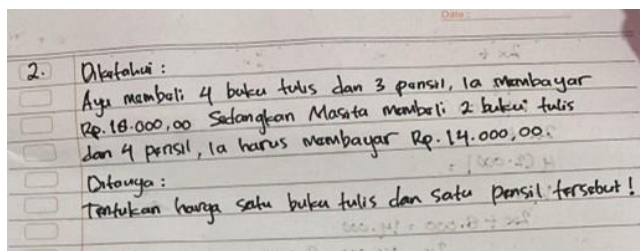 Date :
2. Diketahui :
Ayu membeli 4 buku tulis dan 3 pensil, Ia membayar
Rp. 18.000,00 Sedangkan Masita membeli 2 buku tulis
dan 4 pensil, Ia harus membayar Rp. 14.000,00.
Ditanya :
Tentukan harga satu buku tulis dan satu pensil tersebut !